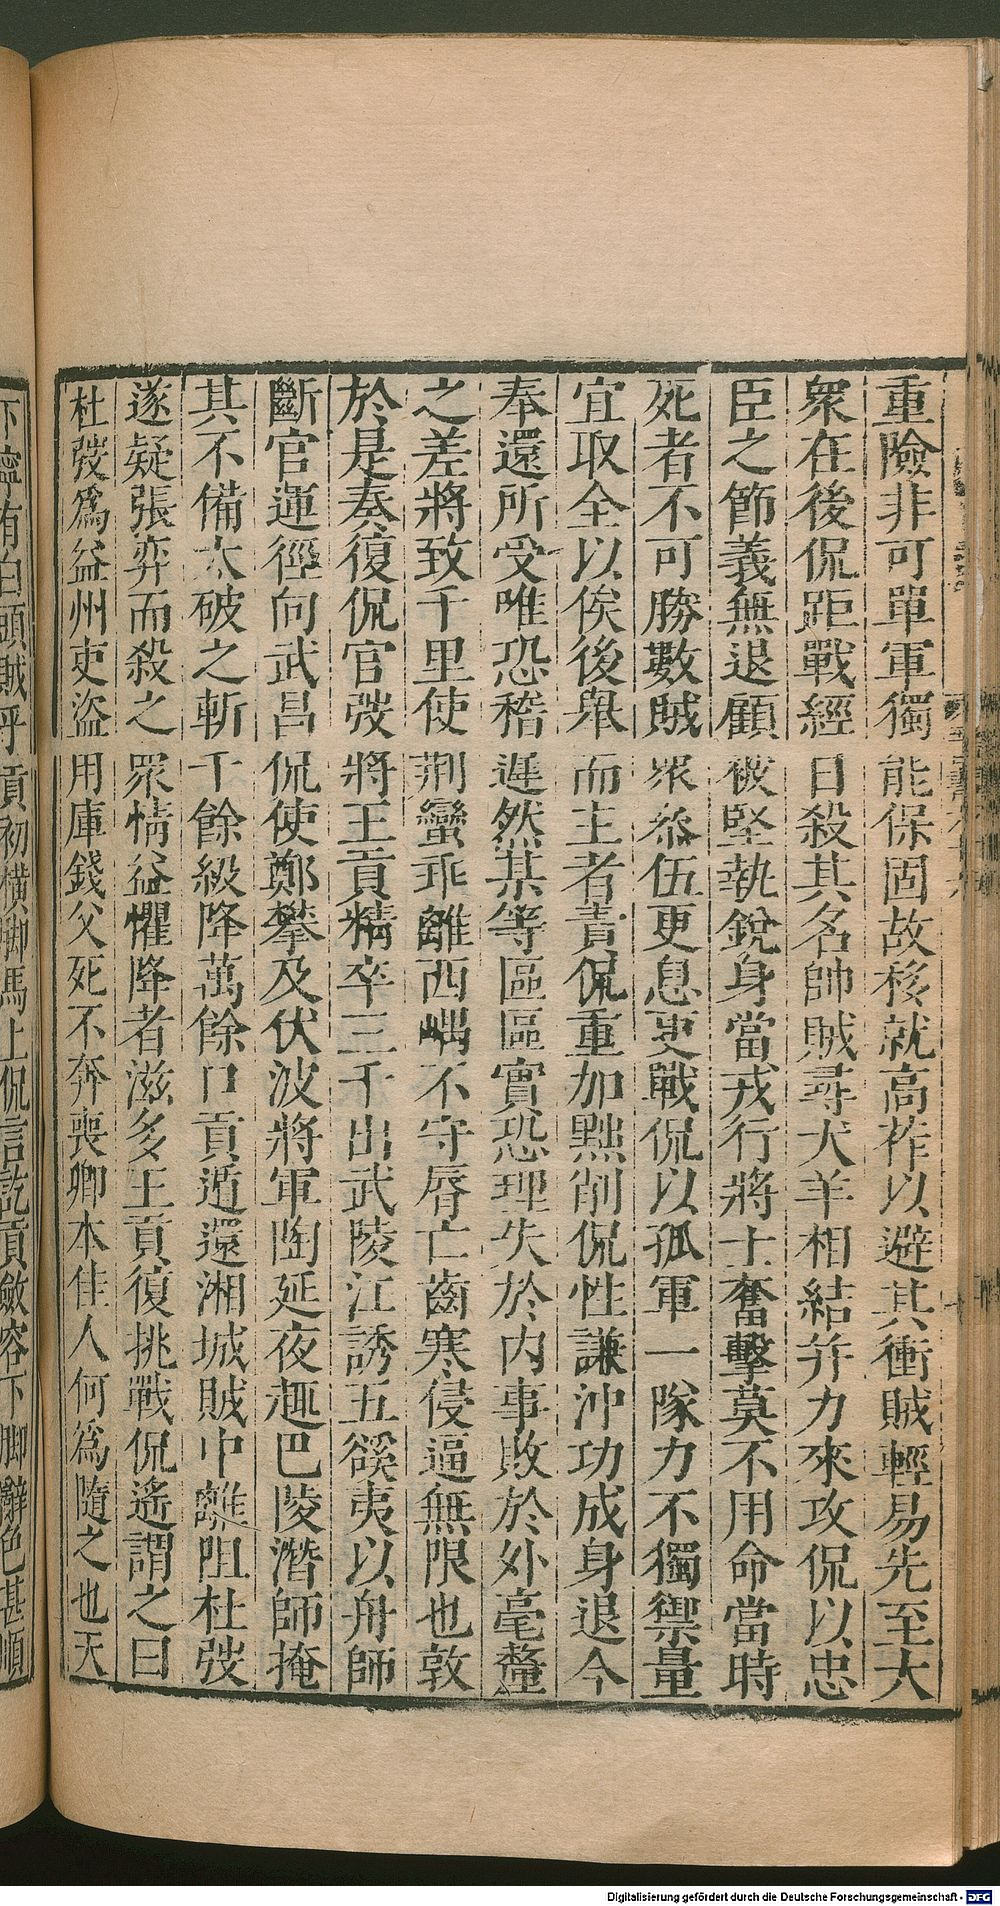 重險非可單軍獨能保固故移就高莋以避其衝賊輕易先至大
衆在後侃距戰經日殺其名帥賊尋犬羊相結并力來攻侃以忠
臣之節義無退顧被堅執銳身當戎行將士奮擊莫不用命當時
死者不可勝數賊衆叅伍更息更戰侃以孤軍一隊力不獨禦量
宜取全以俟後舉而主者責侃重加黜削侃性謙沖功成身退今
奉還所受唯恐稽遲然某等區區實恐理失於內事敗於外毫釐
之差將致千里使荆蠻乖離西嵎不守脣亡齒寒侵逼無限也敦
於是奏復侃官弢將王貢精卒三千出武陵江誘五谿夷以舟師
斷官運徑向武昌侃使鄭攀及伏波將軍陶延夜趣巴陵潛師掩
其不備大破之斬千餘級降萬餘口貢遁還湘城賊中離阻杜弢
遂疑張弈而殺之眾情益懼降者滋多王貢復挑戰侃遙謂之曰
杜弢爲益州吏盜用庫錢父死不奔喪卿本佳人何爲隨之也天
下寧有白頭賊乎貢初橫脚馬上侃言訖貢斂容下脚辭色甚順
Digitalisierung gefördert durch die Deutsche Forschungsgemeinschaft - DFG